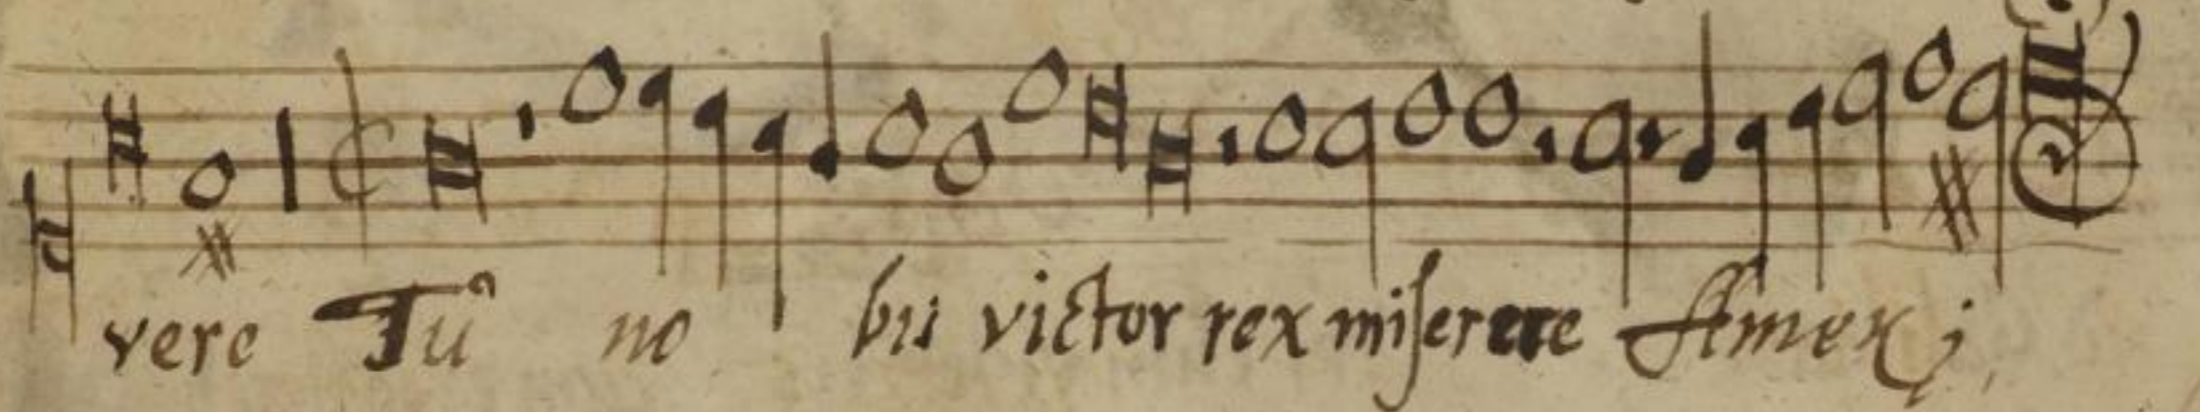 vere Tu no bis victor rex miserere Amen